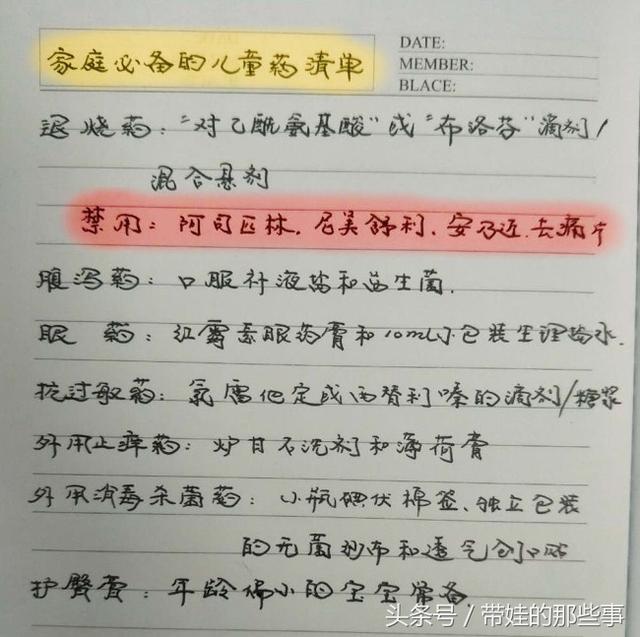 家庭必备的儿童药清单
DATE:
MEMBER:
BLACE:
退烧药："对乙酰氨基酸"或"布洛芬"滴剂/
混合悬剂
禁用：阿司匹林、尼美舒利、安乃近、去痛片
腹泻药：口服补液盐和益生菌.
眼 药：红霉素眼药膏和10mL小包装生理盐水.
抗过敏药：氯雷他定或西替利嗪的滴剂/糖浆
外用止痒药：炉甘石洗剂和薄荷膏
外用消毒杀菌药：小瓶碘伏棉签、独立包装
的无菌纱布和透气创口贴
护臀膏：年龄偏小的宝宝常备
头条号/带娃的那些事